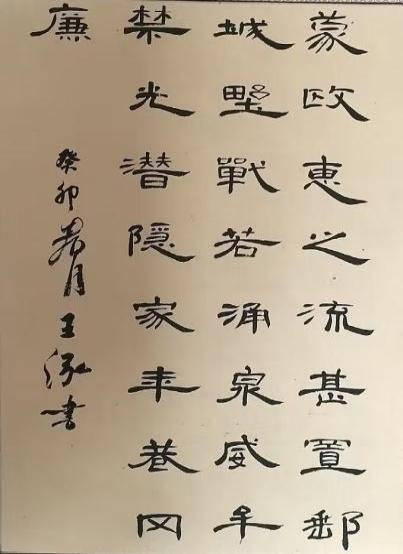 蒙欧惠之流甚置郵
城墅戰若涌泉威牟
禁光潛隱家年巷冈
廉
癸卯荷月王泓書